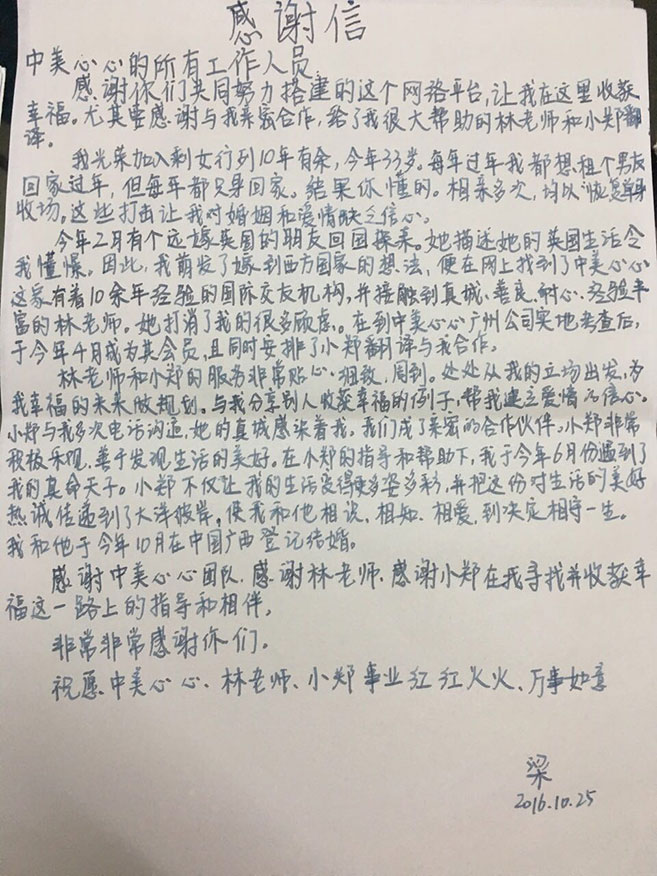 感谢信
中美心心的所有工作人员
感谢你们共同努力搭建的这个网络平台,让我在这里收获
幸福。尤其要感谢与我亲密合作,给了我很大帮助的林老师和小郑翻
译。
我光荣加入剩女行列10年有余,今年33岁。每年过年我都想租个男友
回家过年,但每年都只身回家。结果你懂的。相亲多次,均以恢复单身
收场。这些打击让我对婚姻和爱情缺乏信心。
今年2月有个远嫁英国的朋友回国探亲。她描述她的英国生活令
我憧憬。因此,我萌发了嫁到西方国家的想法,便在网上找到了中美心心
这家有着10余年经验的国际交友机构,并接触到真诚、善良、耐心、经验丰
富的林老师。她打消了我的很多顾虑。在到中美心心广州公司实地考查后,
于今年4月成为其会员,且同时安排了小郑翻译与我合作。
林老师和小郑的服务非常贴心、细致、周到。处处从我的立场出发,为
我幸福的未来做规划。与我分享别人收获幸福的例子,帮我建立爱情的信心。
小郑与我多次电话沟通,她的真诚感染着我。我们成了亲密的合作伙伴。小郑非常
积极乐观、善于发现生活的美好。在小郑的指导和帮助下,我于今年6月份遇到了
我的真命天子。小郑不仅让我的生活变得更多姿多彩,并把这份对生活的美好
热诚传递到了大洋彼岸。使我和他相识、相知、相爱、到决定相守一生。
我和他于今年10月在中国广西登记结婚。
感谢中美心心团队、感谢林老师、感谢小郑在我寻找并收获幸
福这一路上的指导和相伴。
非常非常感谢你们。
祝愿、中美心心、林老师、小郑事业红红火火、万事如意
梁
2016.10.25